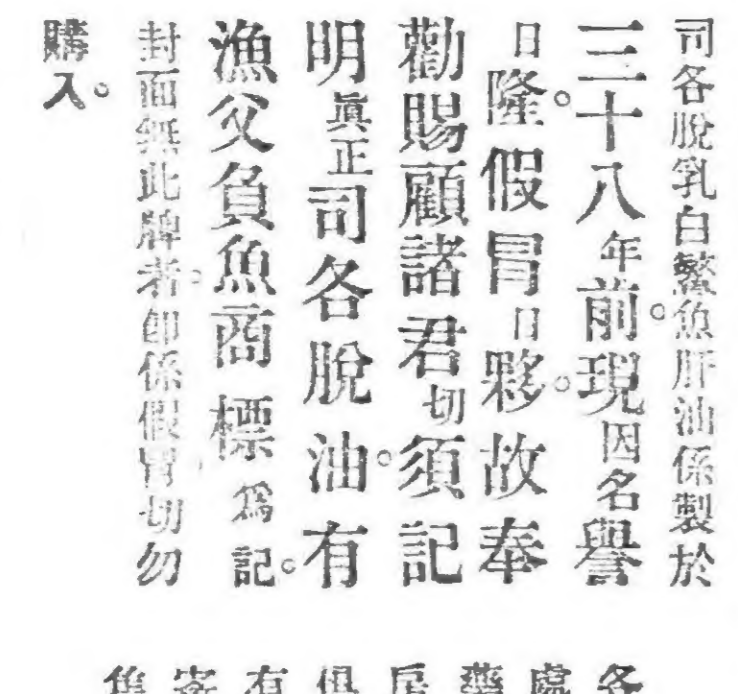 司各脫乳白鰵魚肝油係製於
三十八年前。現因名譽
日隆。假冒日夥。故奉
勸賜顧諸君切須記
明眞正司各脫油。有
漁父負魚商標爲記。
封面無此牌者。卽係假冒切勿
購入。
各處藥房俱有寄售